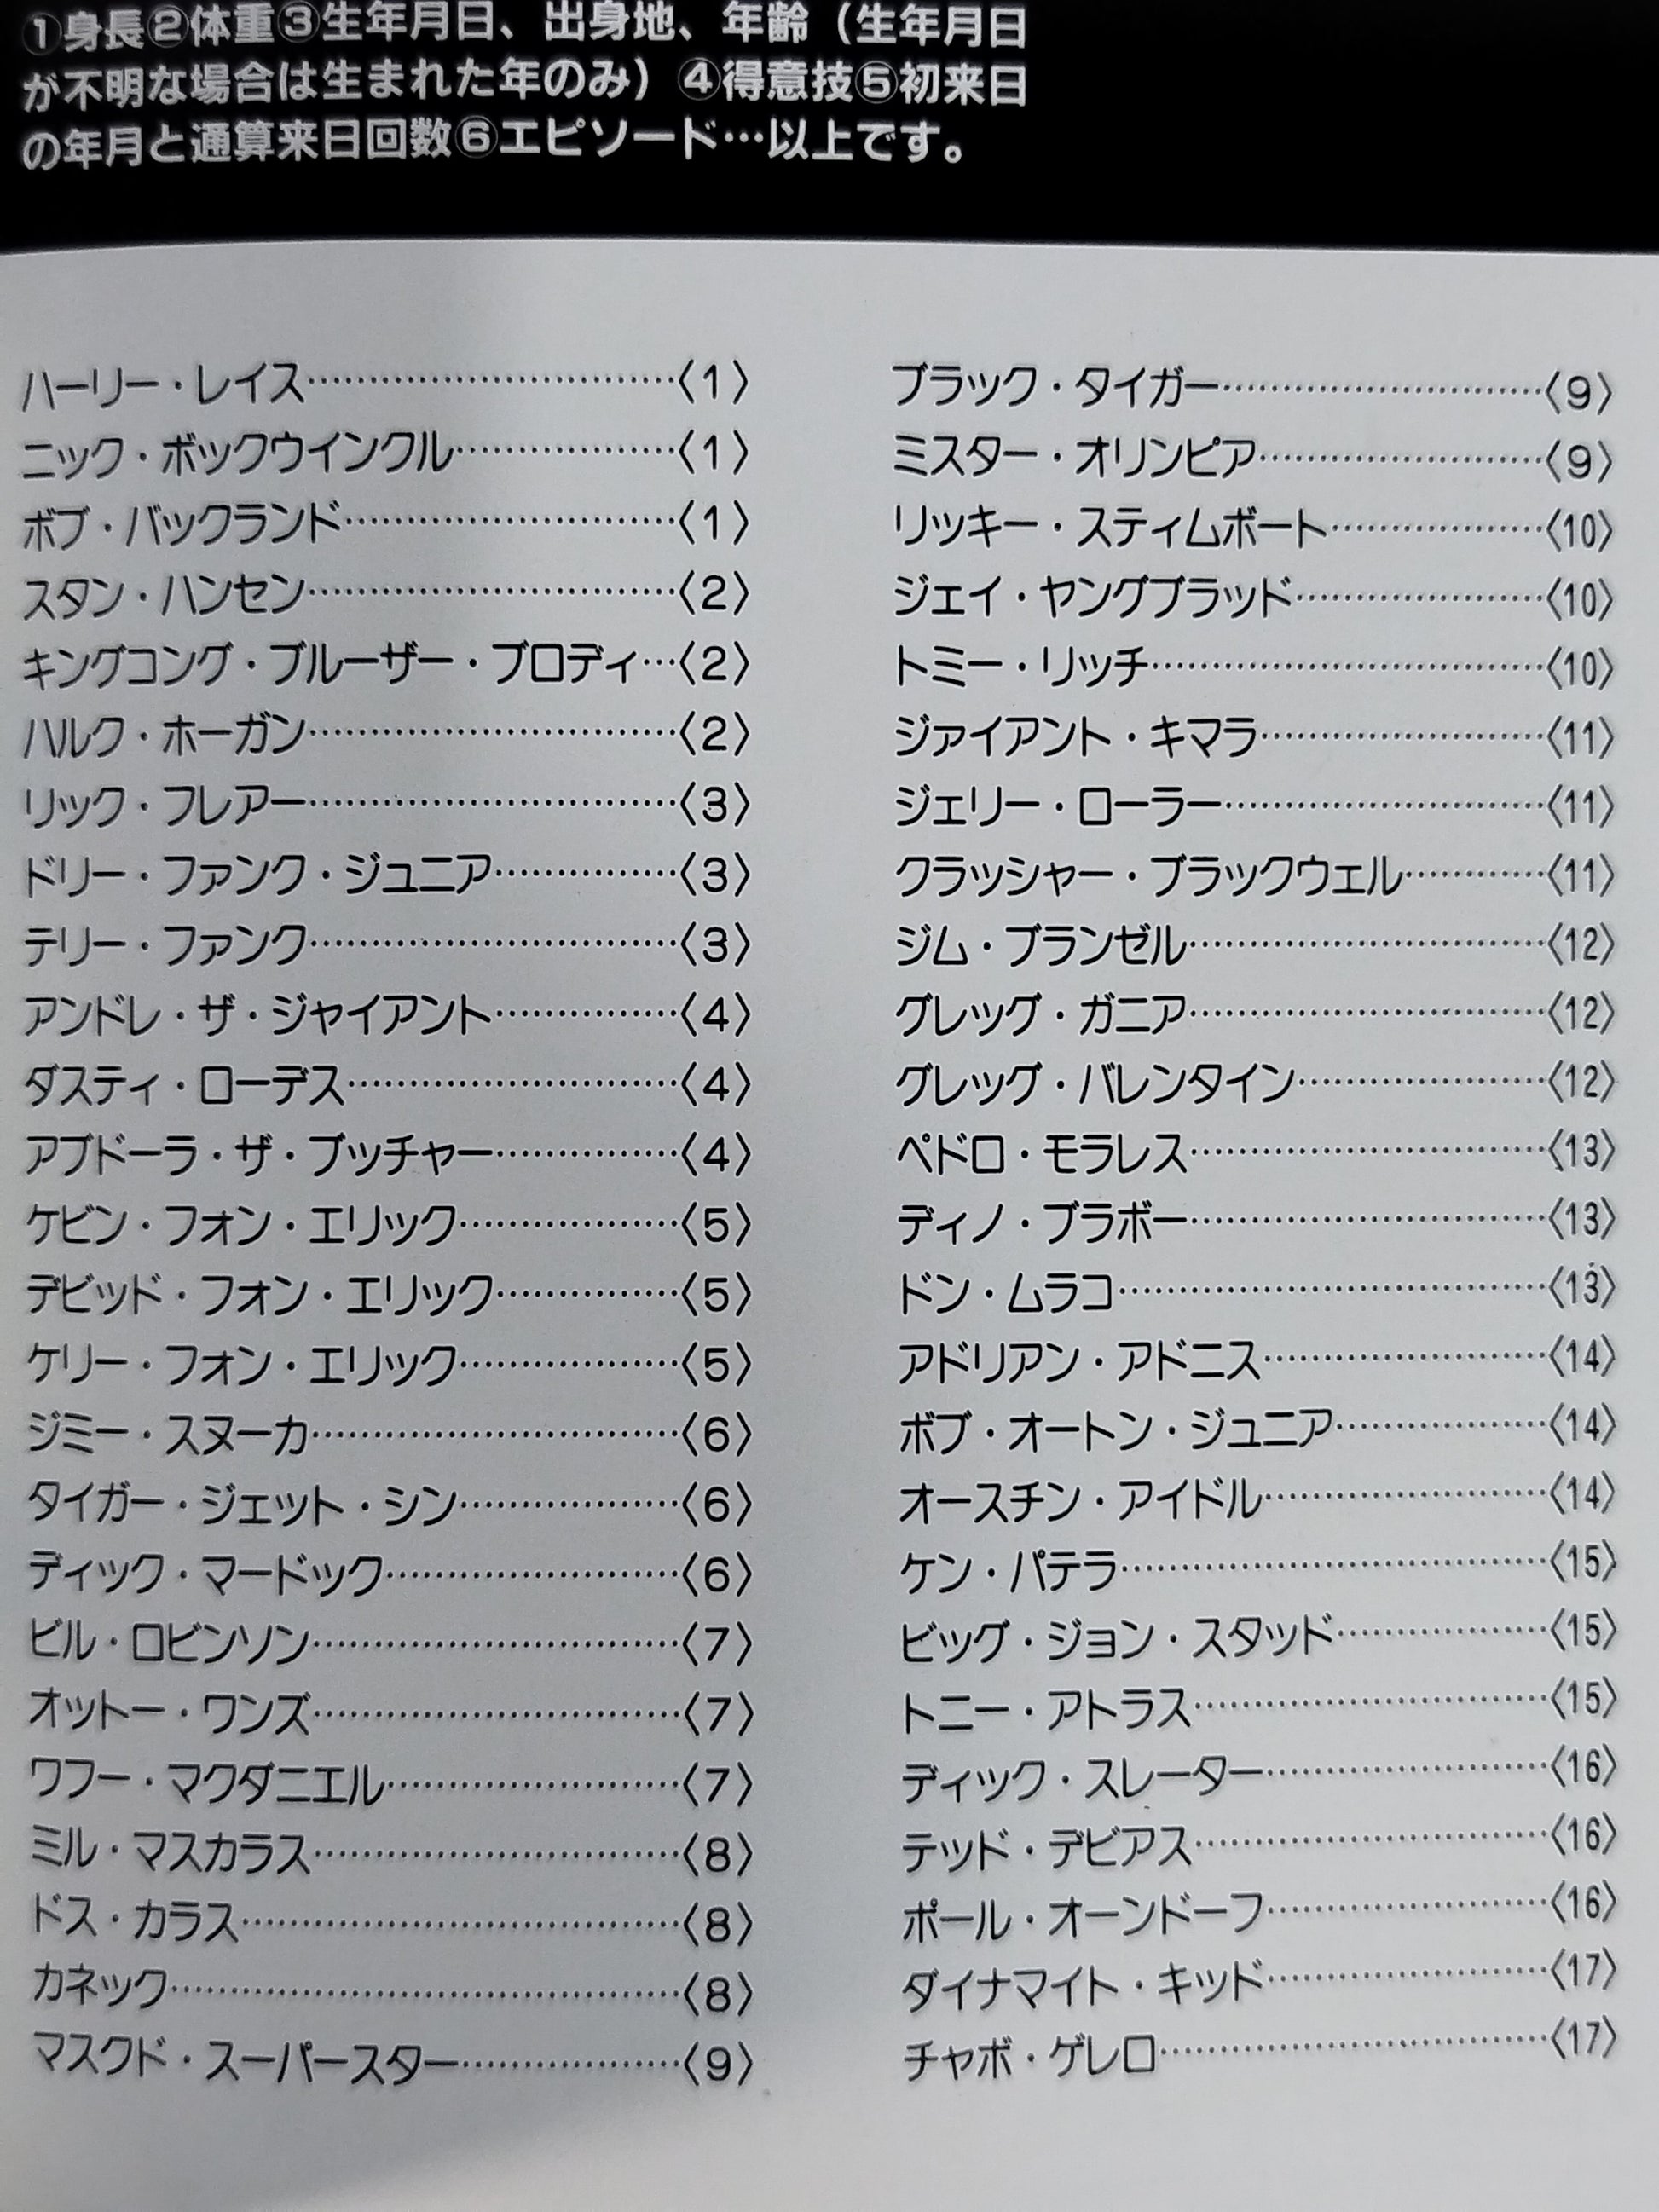 ①身長②体重③生年月日、出身地、年齢（生年月日
が不明な場合は生まれた年のみ）④得意技⑤初来日
の年月と通算来日回数⑥エピソード…以上です。
ハーリー・レイス……………………………〈1〉
ニック・ボックウインクル…………………〈1〉
ボブ・バックランド…………………………〈1〉
スタン・ハンセン……………………………〈2〉
キングコング・ブルーザー・ブロディ…〈2〉
ハルク・ホーガン……………………………〈2〉
リック・フレアー……………………………〈3〉
ドリー・ファンク・ジュニア………………〈3〉
テリー・ファンク……………………………〈3〉
アンドレ・ザ・ジャイアント………………〈4〉
ダスティ・ローデス…………………………〈4〉
アブドーラ・ザ・ブッチャー………………〈4〉
ケビン・フォン・エリック…………………〈5〉
デビッド・フォン・エリック………………〈5〉
ケリー・フォン・エリック…………………〈5〉
ジミー・スヌーカ……………………………〈6〉
タイガー・ジェット・シン…………………〈6〉
ディック・マードック………………………〈6〉
ビル・ロビンソン……………………………〈7〉
オットー・ワンズ……………………………〈7〉
ワフー・マクダニエル………………………〈7〉
ミル・マスカラス……………………………〈8〉
ドス・カラス…………………………………〈8〉
カネック………………………………………〈8〉
マスクド・スーパースター…………………〈9〉
ブラック・タイガー…………………………〈9〉
ミスター・オリンピア………………………〈9〉
リッキー・スティムボート…………………〈10〉
ジェイ・ヤングブラッド……………………〈10〉
トミー・リッチ………………………………〈10〉
ジァイアント・キマラ………………………〈11〉
ジェリー・ローラー…………………………〈11〉
クラッシャー・ブラックウェル……………〈11〉
ジム・ブランゼル……………………………〈12〉
グレッグ・ガニア……………………………〈12〉
グレッグ・バレンタイン……………………〈12〉
ペドロ・モラレス……………………………〈13〉
ディノ・ブラボー……………………………〈13〉
ドン・ムラコ…………………………………〈13〉
アドリアン・アドニス………………………〈14〉
ボブ・オートン・ジュニア…………………〈14〉
オースチン・アイドル………………………〈14〉
ケン・パテラ…………………………………〈15〉
ビッグ・ジョン・スタッド…………………〈15〉
トニー・アトラス……………………………〈15〉
ディック・スレーター………………………〈16〉
テッド・デビアス……………………………〈16〉
ポール・オーンドーフ………………………〈16〉
ダイナマイト・キッド………………………〈17〉
チャボ・ゲレロ………………………………〈17〉